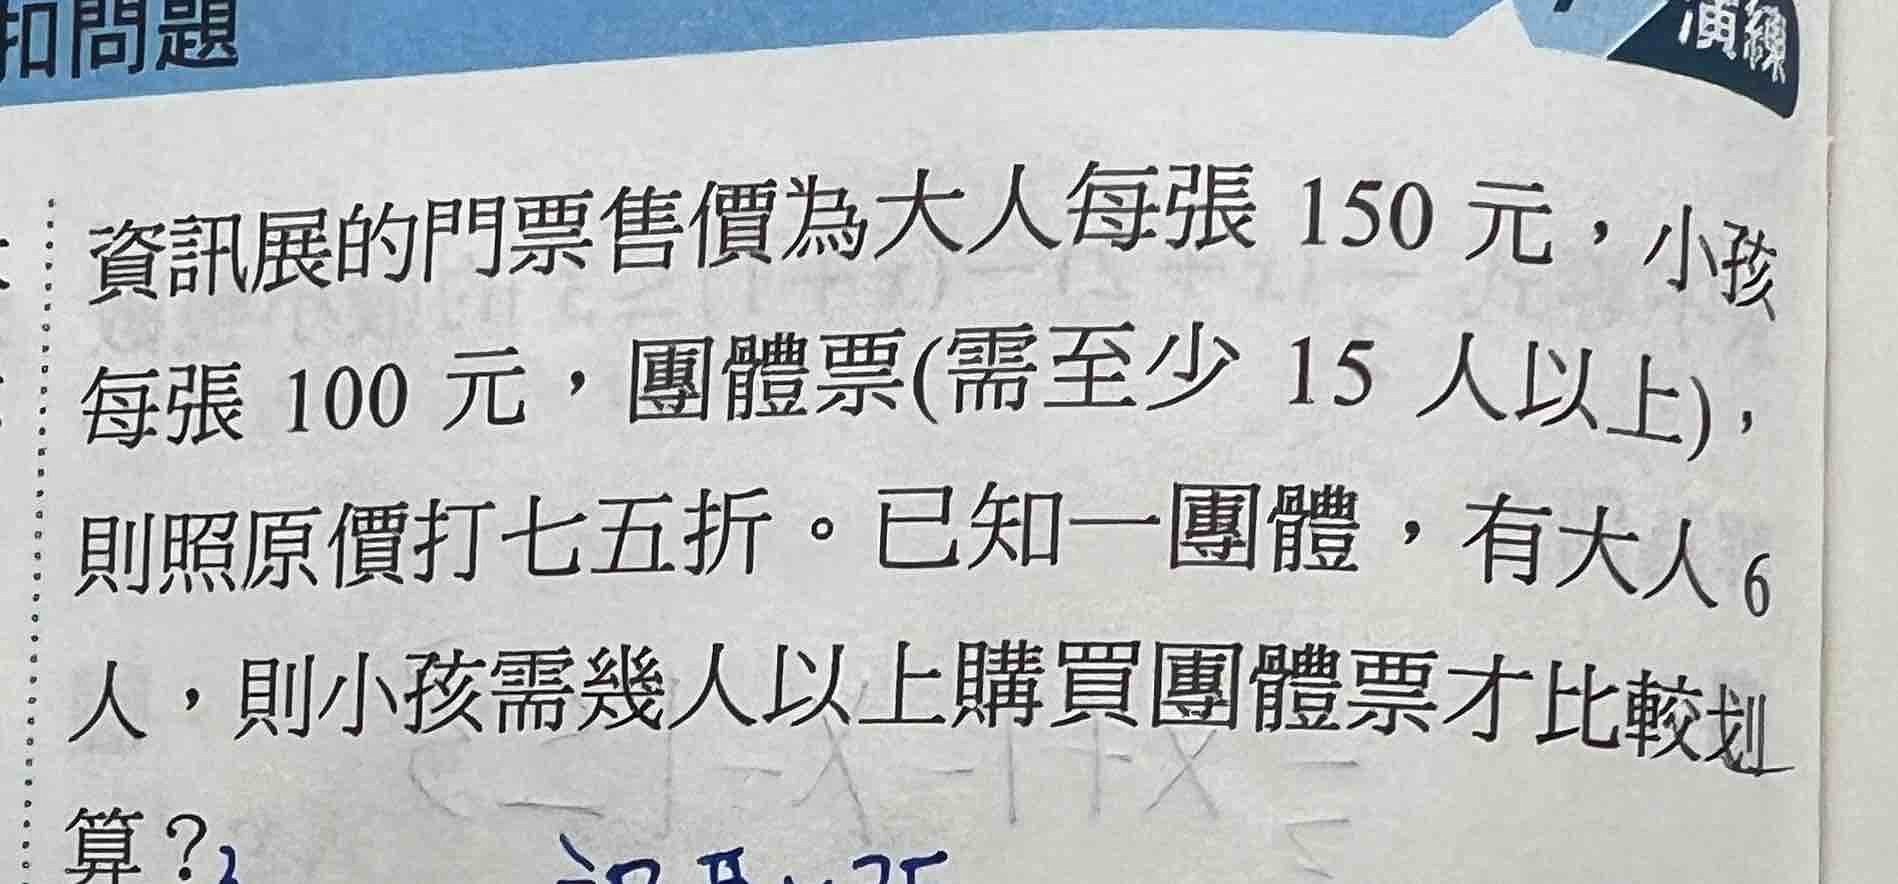 扣問題
演練
資訊展的門票售價為大人每張 150 元，小孩
每張 100 元，團體票(需至少 15 人以上)，
則照原價打七五折。已知一團體，有大人 6
人，則小孩需幾人以上購買團體票才比較划
算？